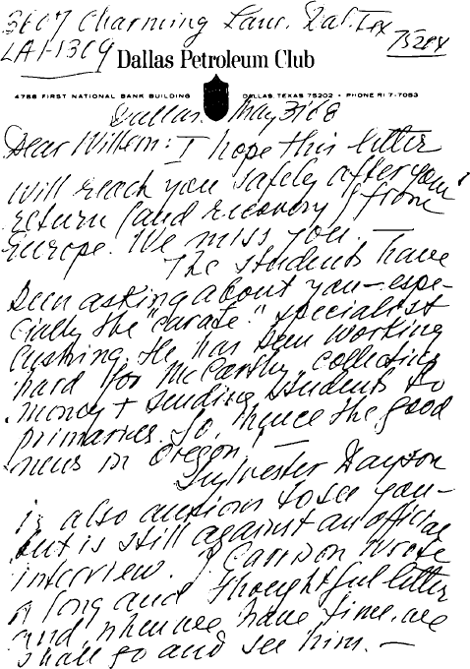 3607 Charming Lane. Dal. Tex
LA1-1309 75204
Dallas Petroleum Club
4788 FIRST NATIONAL BANK BUILDING DALLAS, TEXAS 75202 • PHONE RI 7-7083
Dallas. May 31 68
Dear Willson: I hope this letter
will reach you safely after your
return (and recovery) from
Europe. We miss you.
The students have
been asking about you – espe-
cially the "carate" specialist
Cushing. He has been working
hard for McCarthy, collecting
money + sending students to
primaries. So, hence the good
news in Oregon! —
Sylvester Dayson
is also anxious to see you –
but is still against an official
interview. J Garrison wrote
a long and thoughtful letter
and when we have time, we
shall go and see him. —